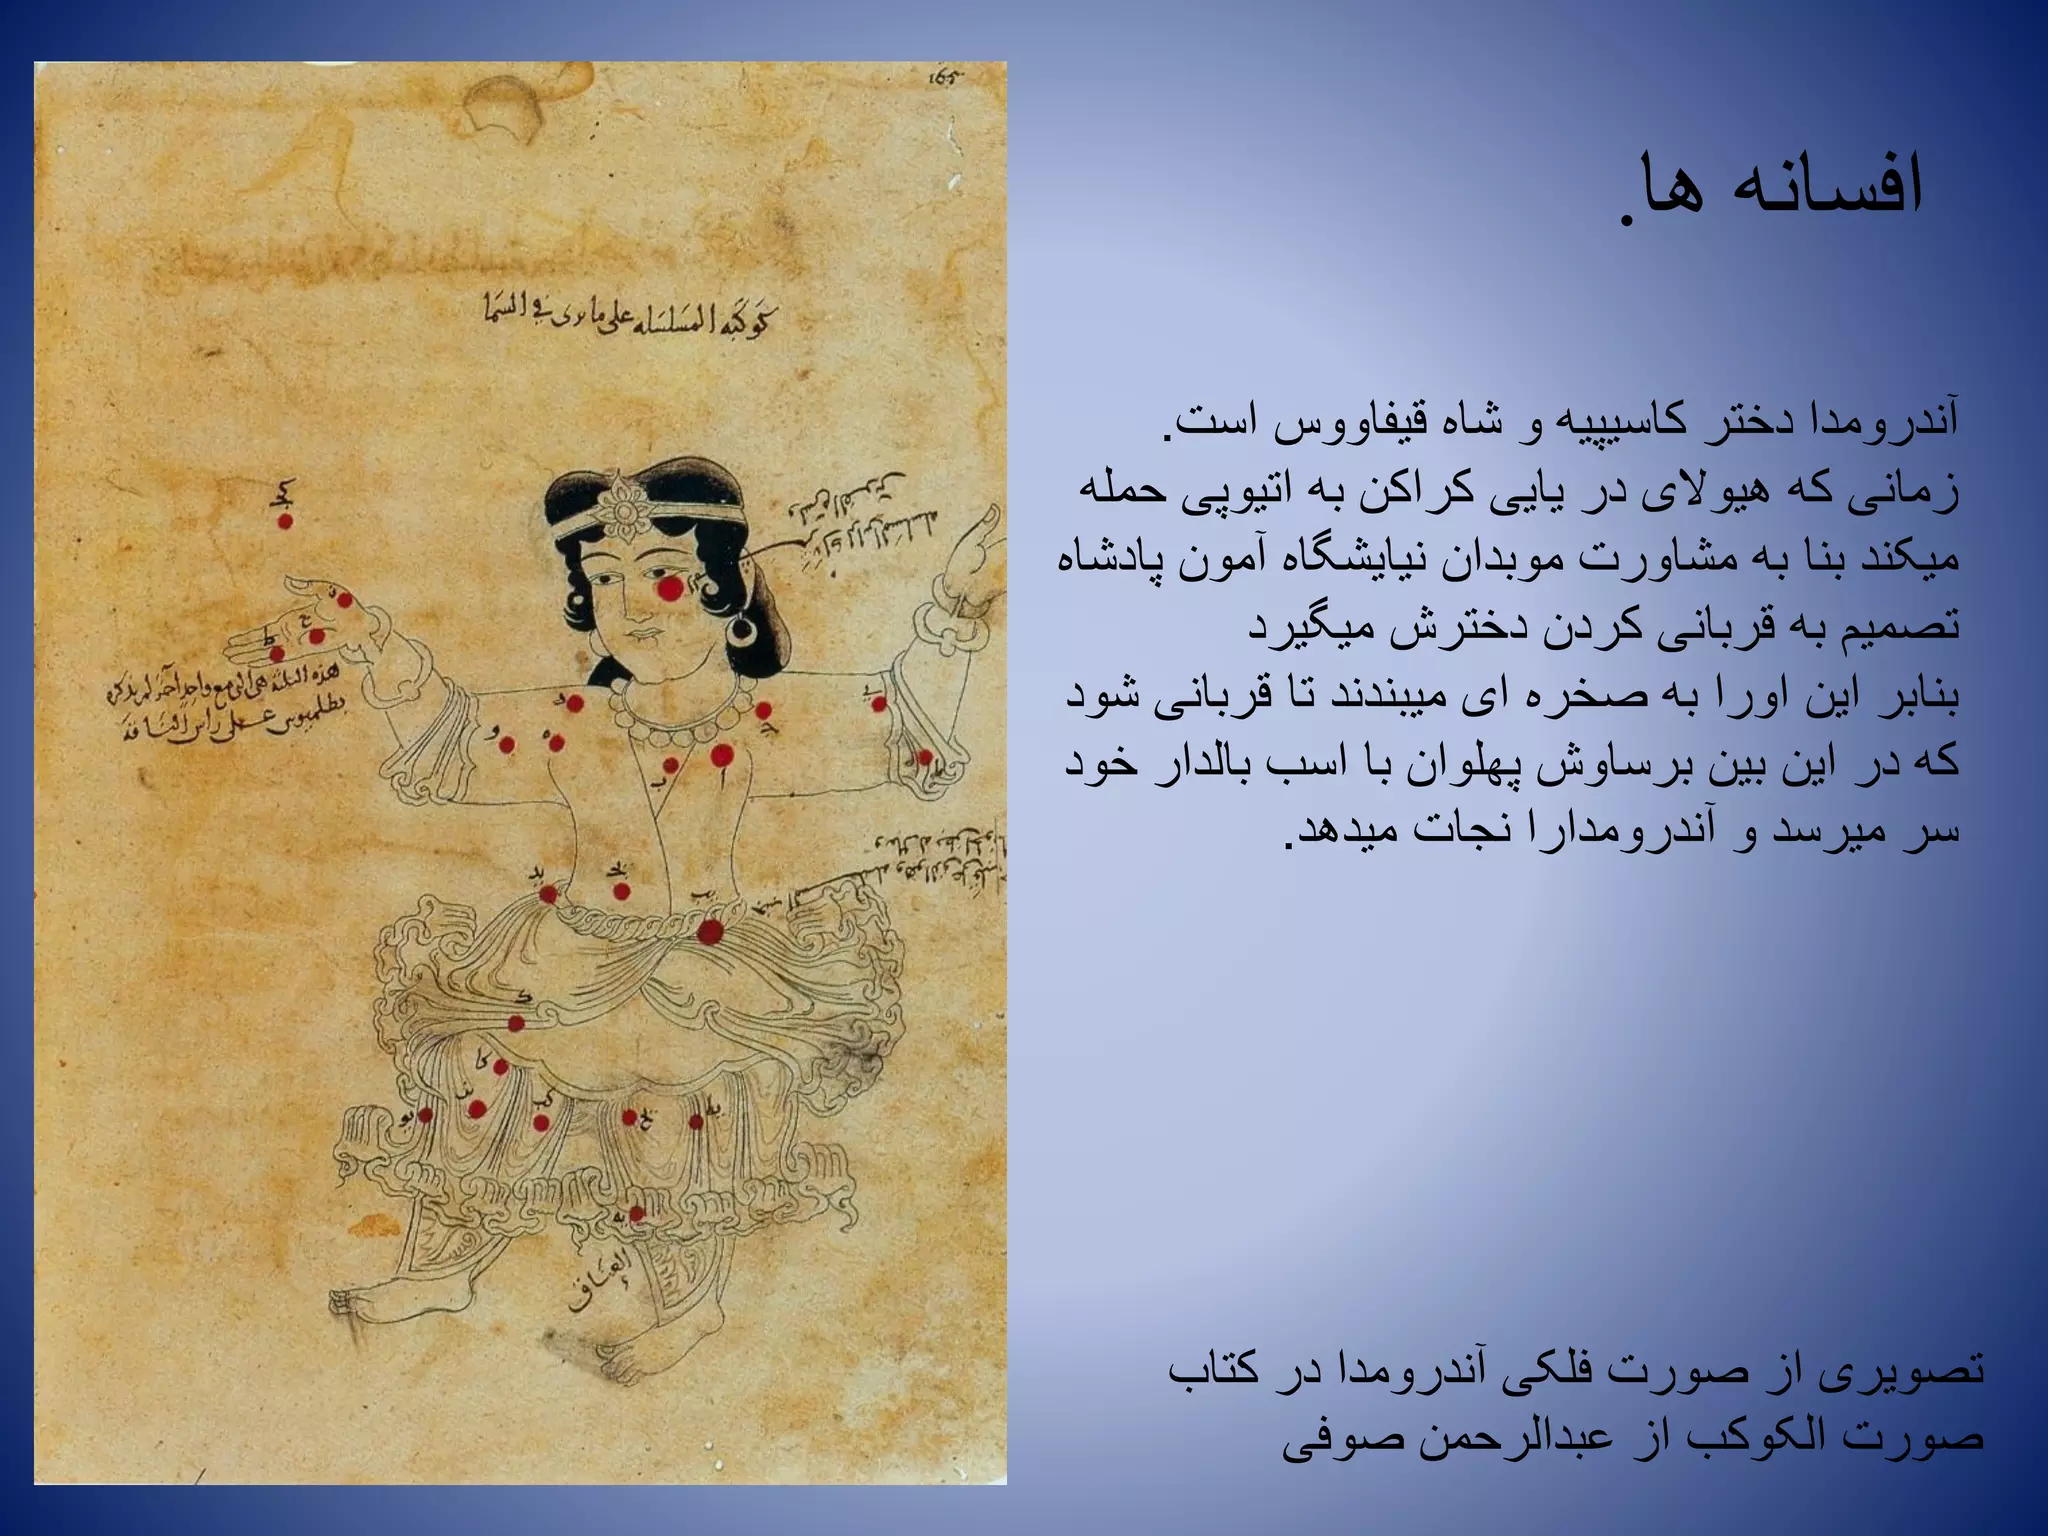 افسانه ها.
آندرومدا دختر کاسیپیه و شاه قیفاووس است.
زمانی که هیولای در یایی کراکن به اتیوپی حمله
میکند بنا به مشاورت موبدان نیایشگاه آمون پادشاه
تصمیم به قربانی کردن دخترش میگیرد
بنابر این اورا به صخره ای میبندند تا قربانی شود
که در این بین برساوش پهلوان با اسب بالدار خود
سر میرسد و آندرومدارا نجات میدهد.
تصویری از صورت فلکی آندرومدا در کتاب
صورت الکوکب از عبدالرحمن صوفی
165
كوكبه المسلسله على ما يرى في السما
هذه الثلثة هي التي مع واحد آخر لم يذكره
بطلميوس على راس الناقة
العناق